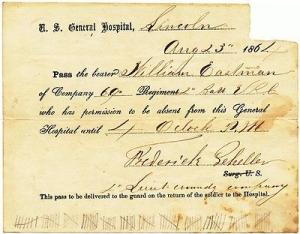 U. S. General Hospital, Lincoln
Aug 23rd 1864
Pass the bearer William Eastman
of Company Regiment 2nd Batt V R C
who has permission to be absent from this General
Hospital until 4 Oclock P.M
Frederick Scheller
Surg. U. S.
1st Lieut Company
This pass to be delivered to the guard on the return of the soldier to the Hospital.